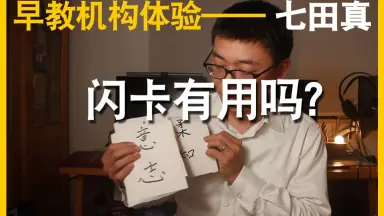 早教机构体验—— 七田真
闪卡有用吗?
意志
柔和